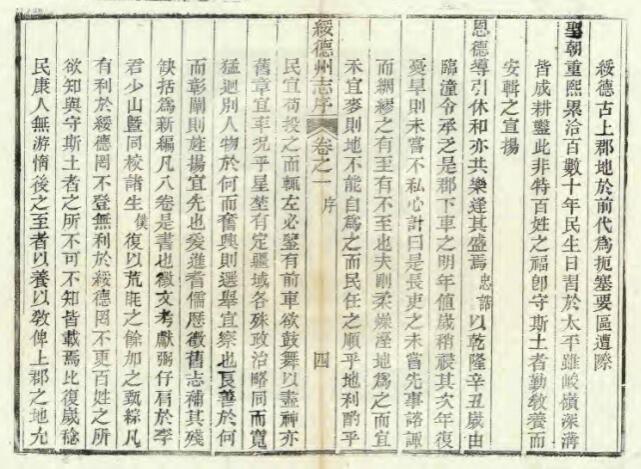 綏德古上郡地於前代為扼塞要區遭際
聖朝重熙累洽百數十年民生日習於太平雖峻嶺深溝
皆成耕鑿此非特百姓之福卽守斯土者勤敎養而
安輯之宣揚
恩德導引休和亦共樂逢其盛焉忠誥以乾隆辛丑歲由
臨潼令承乏是郡下車之明年值歲稍祲其次年復
憂旱則未嘗不私心計曰是長吏之未嘗先事諮諏
而綢繆之有至有不至也夫剛柔燥溼地為之而宜
禾宜麥則地不能自為之而民任之順乎地利酌乎
綏德州志序 卷之一 序 四
民宜苟投之而輒左必鑒有前車欲鼓舞以盡神亦
舊章宜率況乎星埜有定疆域各殊政治略同而寬
猛迥別人物於何而奮興則選舉宜察也良善於何
而彰闡則旌揚宜先也爰進耆儒歷徵舊志補其殘
缺括為新編凡八卷是書也徵文考獻弼仔肩於李
君少山曁同校諸生僕復以荒耗之餘加之甄綜凡
有利於綏德罔不登無利於綏德罔不更百姓之所
欲知與守斯土者之所不可不知皆載焉比復歲稔
民康人無游惰後之至者以養以敎俾上郡之地允